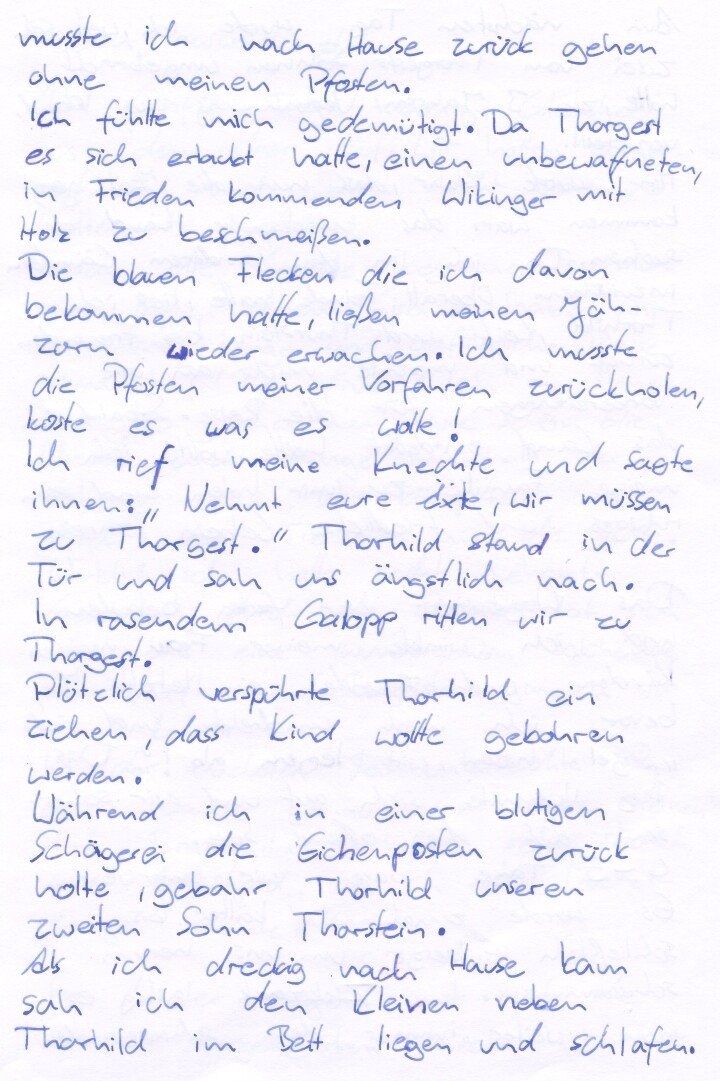 musste ich nach Hause zurück gehen
ohne meinen Pfosten.
Ich fühlte mich gedemütigt. Da Thorgest
es sich erlaubt hatte, einen unbewaffneten,
in Frieden kommenden Wikinger mit
Holz zu beschmeißen.
Die blauen Flecken die ich davon
bekommen hatte, ließen meinen Jäh-
zorn wieder erwachen. Ich musste
die Pfosten meiner Vorfahren zurückholen,
koste es was es wolle!
Ich rief meine Knechte und sagte
ihnen: „Nehmt eure Äxte, wir müssen
zu Thorgest." Thorhild stand in der
Tür und sah uns ängstlich nach.
In rasendem Galopp ritten wir zu
Thorgest.
Plötzlich verspührte Thorhild ein
ziehen, dass Kind wollte gebohren
werden.
Während ich in einer blutigen
Schägerei die Eichenposten zurück
holte, gebahr Thorhild unseren
zweiten Sohn Thorstein.
Als ich dreckig nach Hause kam
sah ich den Kleinen neben
Thorhild im Bett liegen und schlafen.